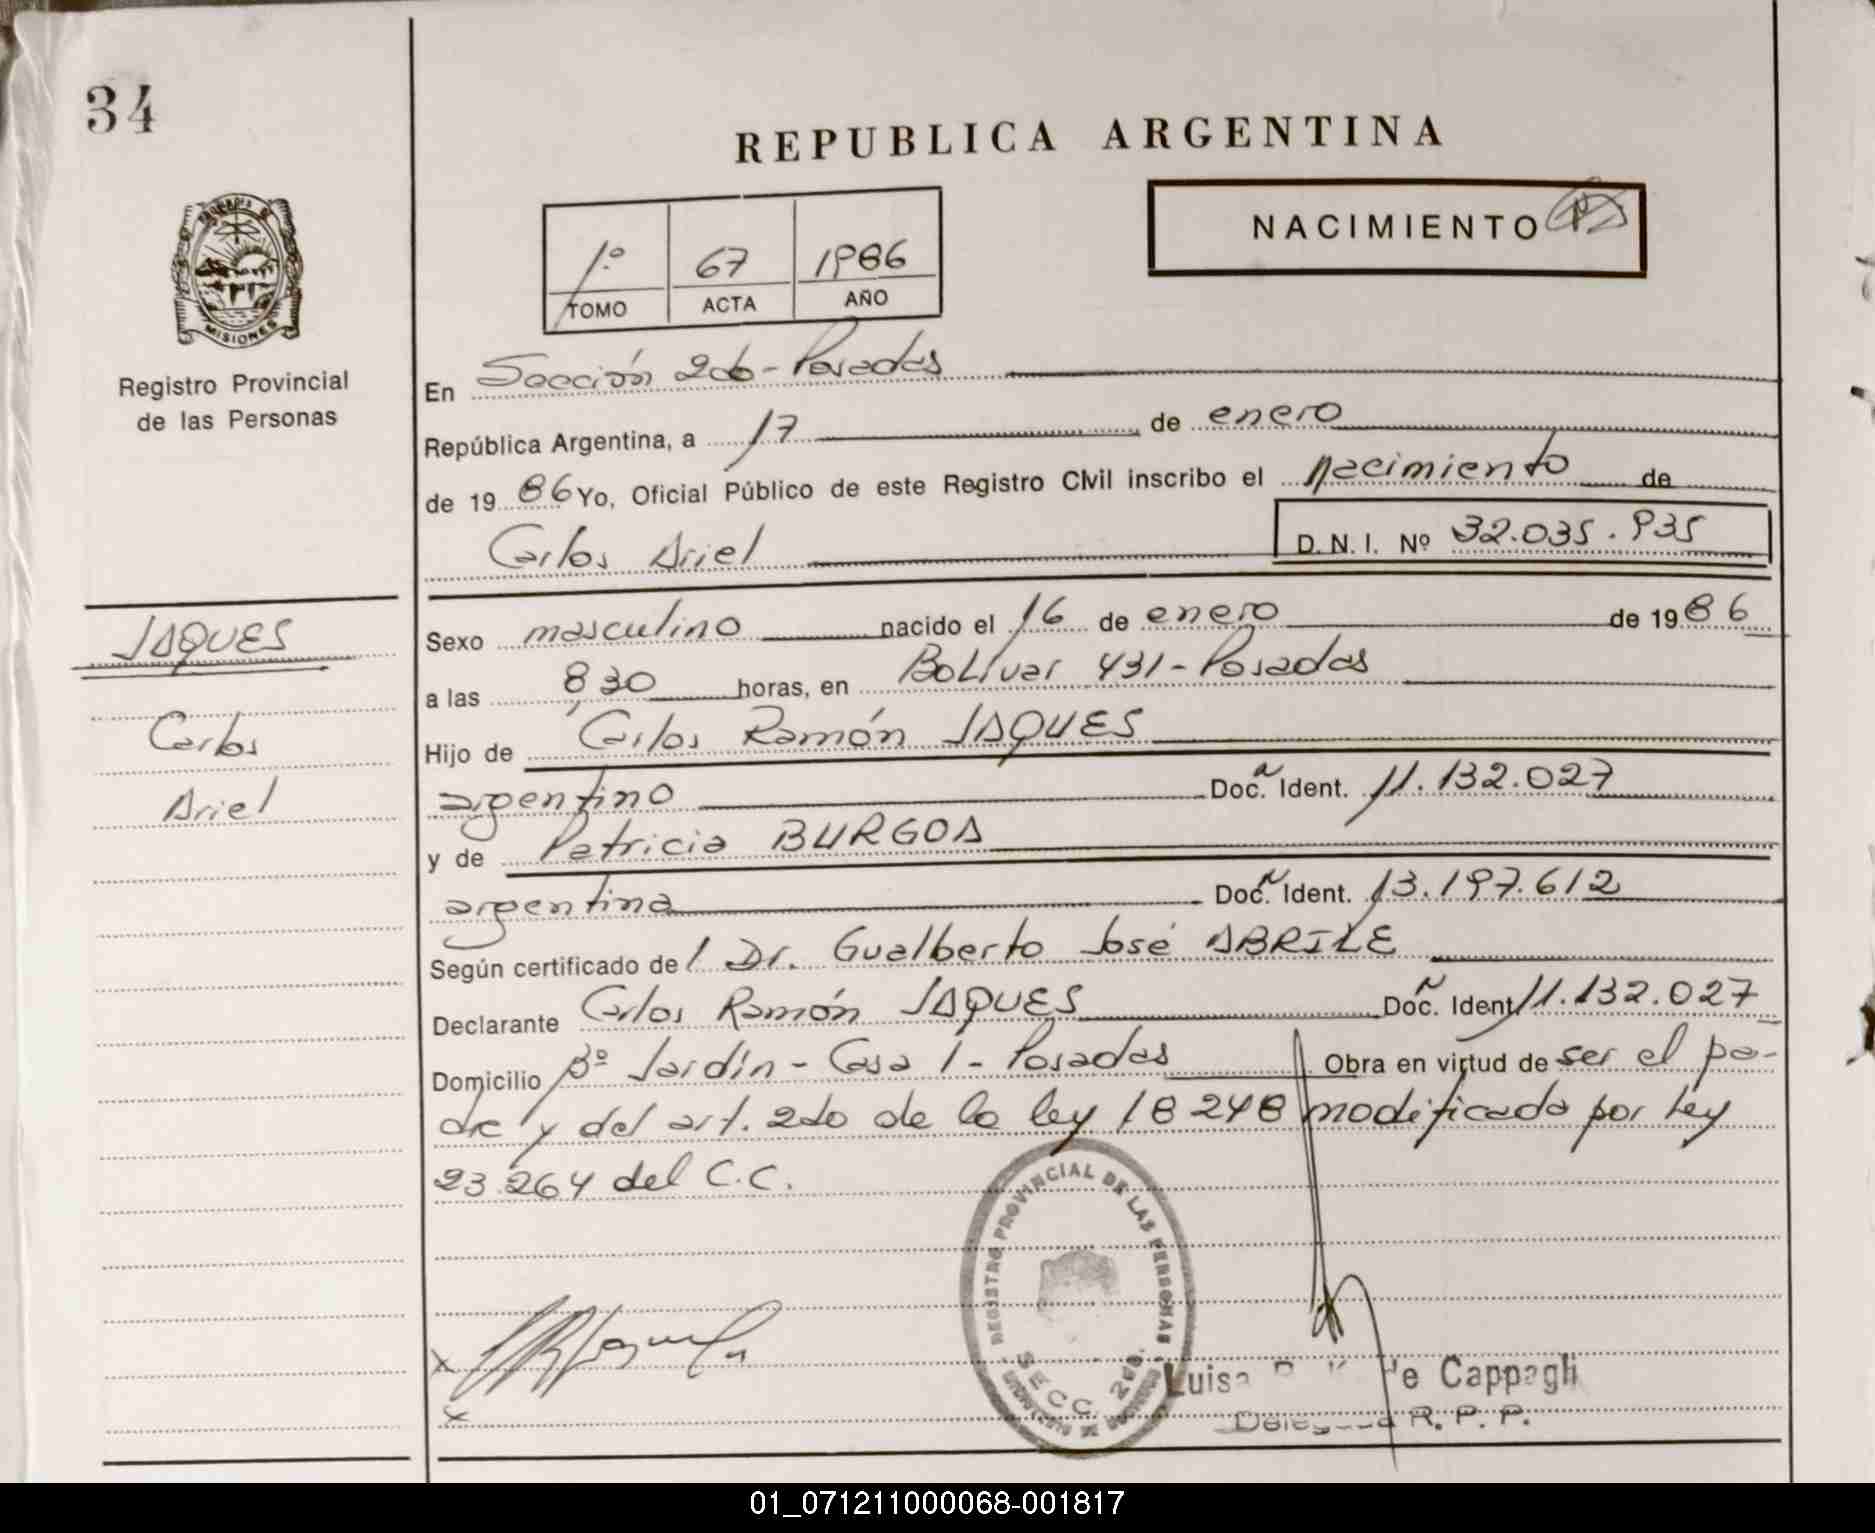 34
REPUBLICA ARGENTINA
NACIMIENTO
1º 67 1986
TOMO ACTA AÑO
MISIONES
Registro Provincial
de las Personas
En Sección 2da-Posadas
República Argentina, a 17 de enero
de 1986 Yo, Oficial Público de este Registro Civil inscribo el nacimiento de
Carlos Ariel D. N. I. Nº 32.035.935
JAQUES
Carlos
Ariel
Sexo masculino nacido el 16 de enero de 1986
a las 8,30 horas, en Bolívar 431-Posadas
Hijo de Carlos Ramón JAQUES
argentino Doc. Ident. 11.132.027
y de Patricia BURGOS
argentina Doc. Ident. 13.197.612
Según certificado del Dr. Gualberto José ABRILE
Declarante Carlos Ramón JAQUES Doc. Ident. 11.132.027
Domicilio Bº Jardín - Casa 1 - Posadas Obra en virtud de ser el pa-
dre y del art. 2do de la ley 18248 modificada por ley
23.264 del C.C.
REGISTRO PROVINCIAL DE LAS PERSONAS
SECC. 2da.
x
x
Luisa de Cappagli
Delegada R. P. P.
01_071211000068-001817